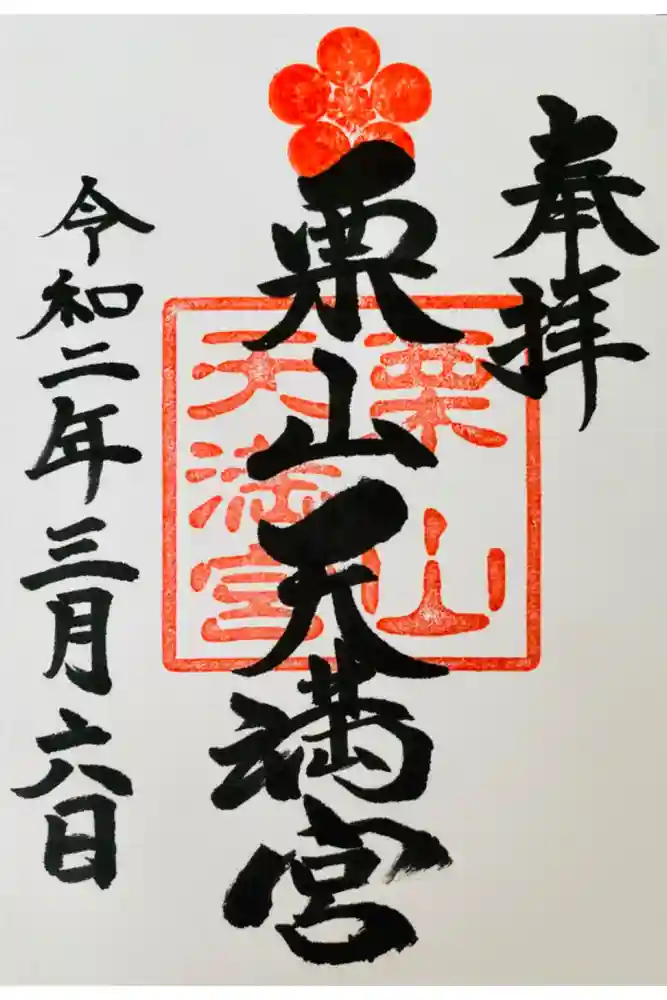 奉拝
栗山天満宮
栗山
天満宮
令和二年三月六日